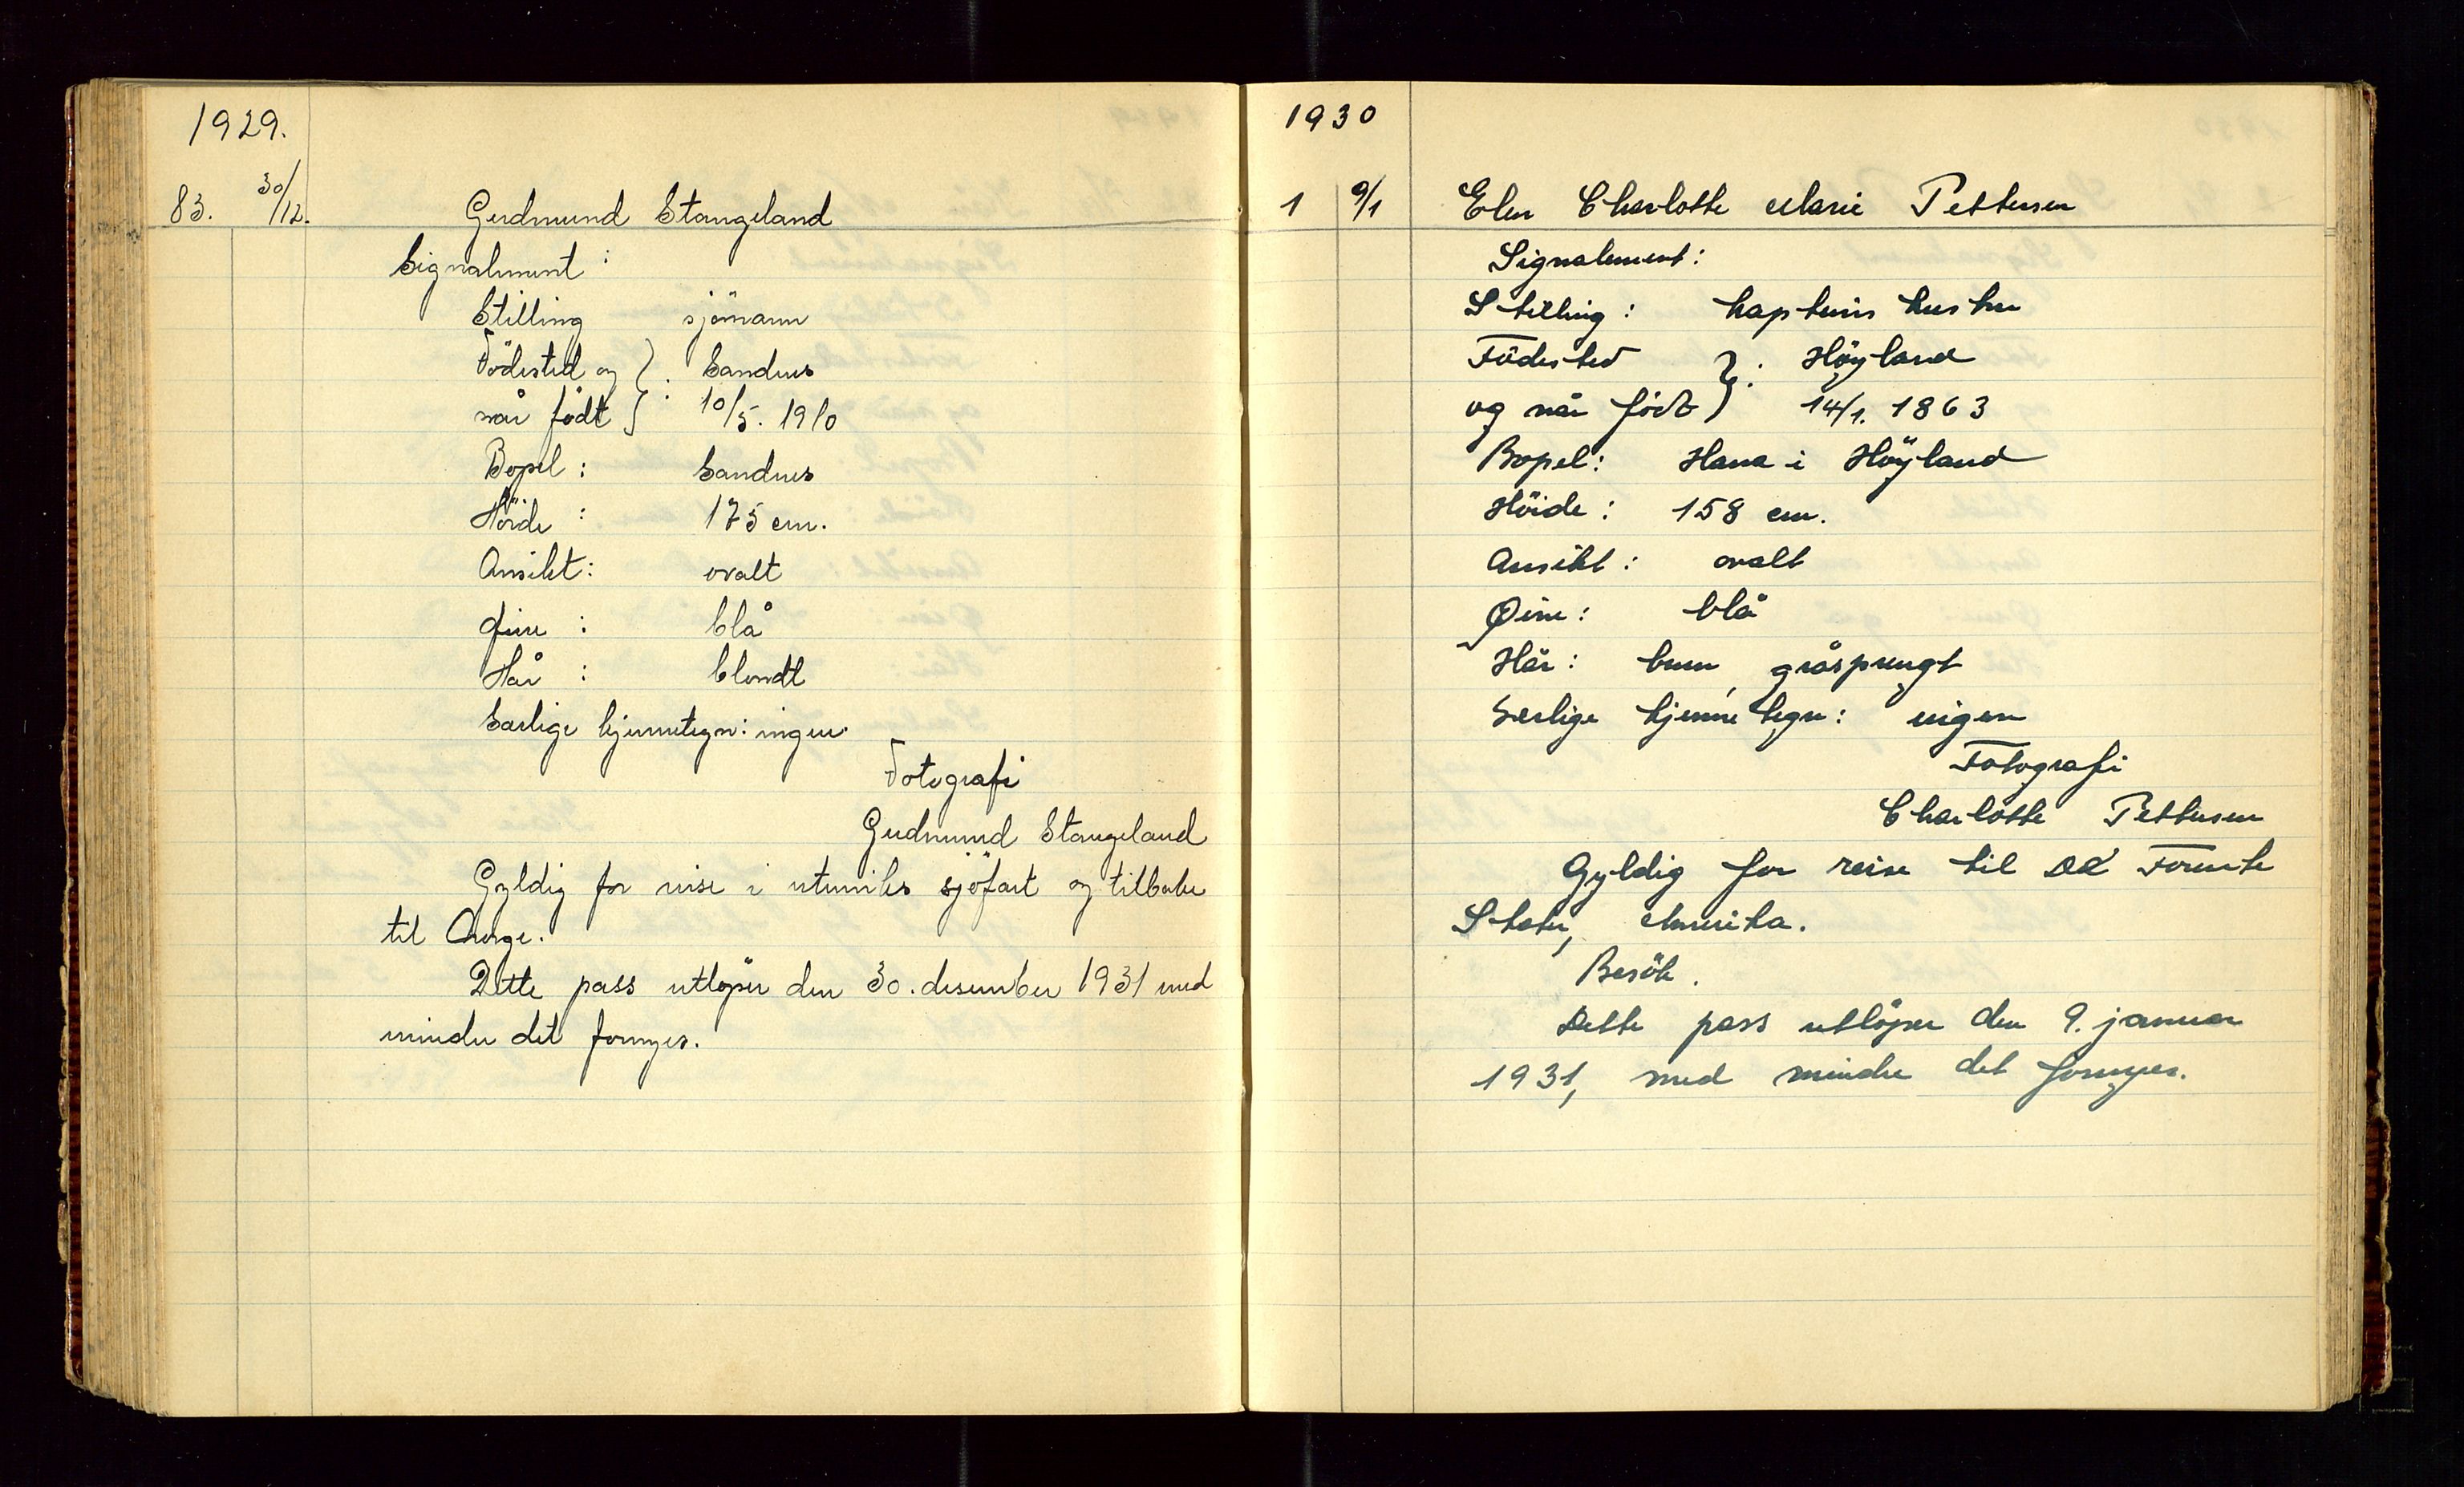 1929.
83. 30/12. Gudmund Stangeland
Signalement:
Stilling sjömann
Födested og } : Sandnes
når födt } 10/5. 1910
Bopel: Sandnes
Höide: 175 cm.
Ansikt: ovalt
Øine: blå
Hår: blondt
Særlige kjennetegn: ingen.
Fotografi
Gudmund Stangeland
Gyldig for reise i utenriks sjöfart og tilbake
til Norge.
Dette pass utlöper den 30. desember 1931 med
mindre det fornyes.
1930
1 9/1 Elen Charlotte Marie Pettersen
Signalement:
Stilling: kapteins hustru
Födested } : Höyland
og når födt } 14/1. 1863
Bopel: Hana i Höyland
Höide: 158 cm.
Ansikt: ovalt
Øine: blå
Hår: brun, gråsprengt
Særlige kjennetegn: ingen
Fotografi
Charlotte Pettersen
Gyldig for reise til De Forente
Stater, Amerika.
Besök.
Dette pass utlöper den 9. januar
1931, med mindre det fornyes.